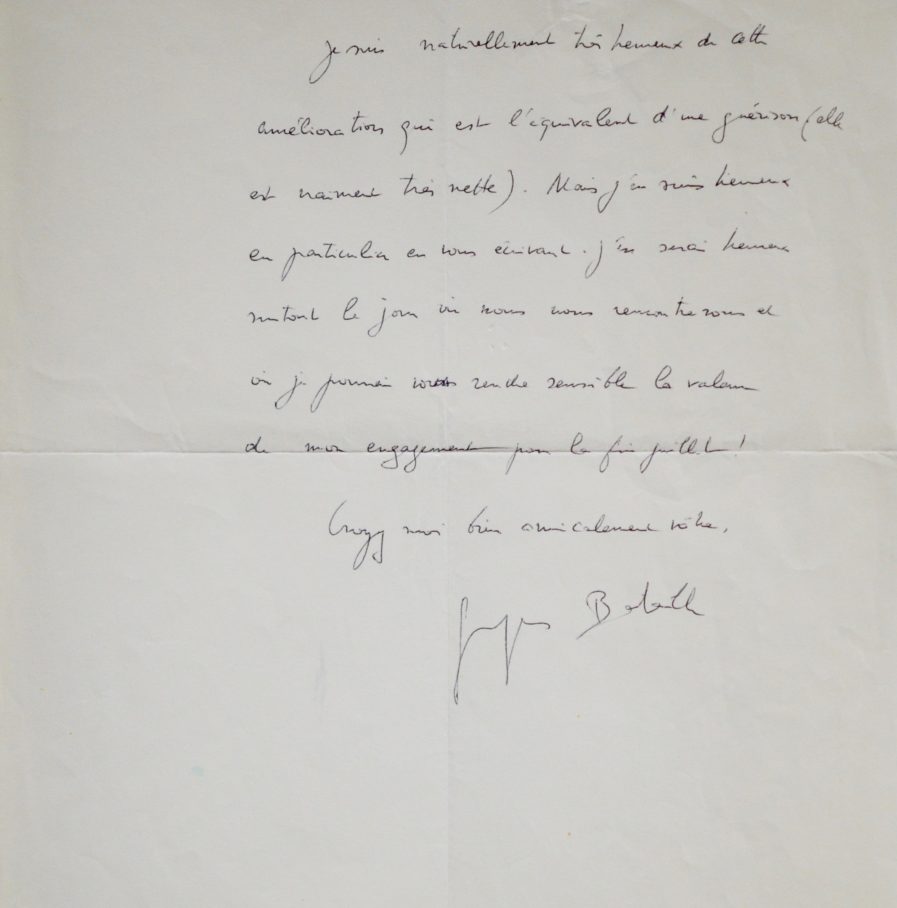 Je suis naturellement très heureux de cette
amélioration qui est l'équivalent d'une guérison (elle
est vraiment très nette). Mais j'en suis heureux
en particulier en vous écrivant. J'en serai heureux
surtout le jour où nous nous rencontrerons et
où je pourrai vous rendre sensible la valeur
de mon engagement pour la fin juillet!
Croyez moi bien amicalement vôtre,
Georges Bataille